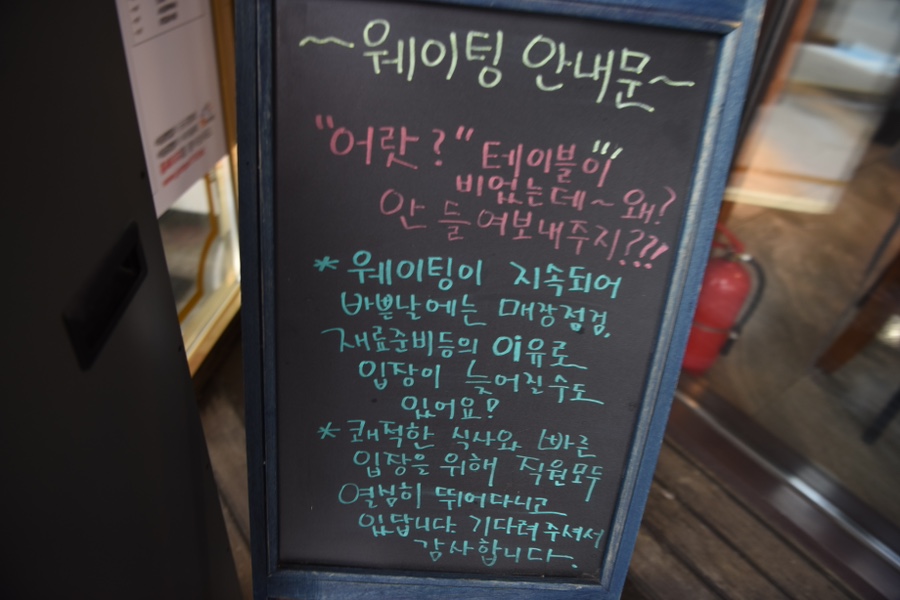 ~웨이팅 안내문~
"어랏?" 테이블이
비었는데~ 왜?
안 들여보내주지???
*웨이팅이 지속되어
바쁜날에는 매장점검,
재료준비등의 이유로
입장이 늦어질수도
있어요!
*쾌적한 식사와 빠른
입장을 위해 직원모두
열심히 뛰어다니고
있답니다. 기다려주셔서
감사합니다.